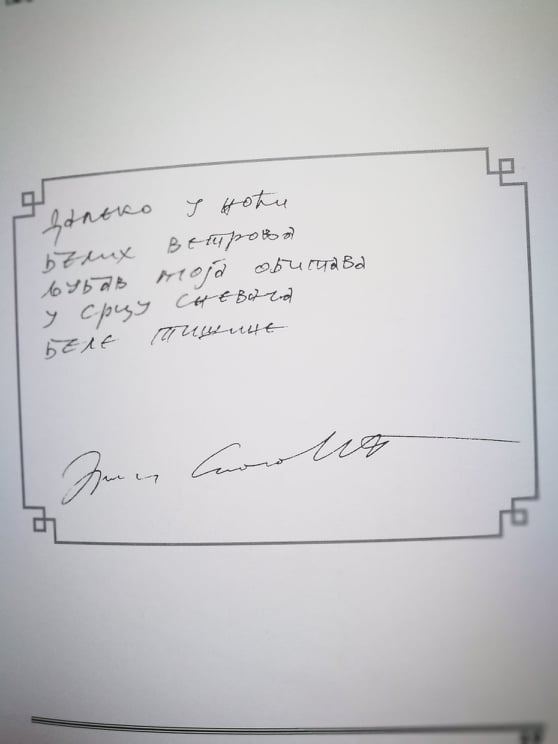 Далеко у ноћи
белих ветрова
љубав моја обитава
у срцу сневача
беле тишине